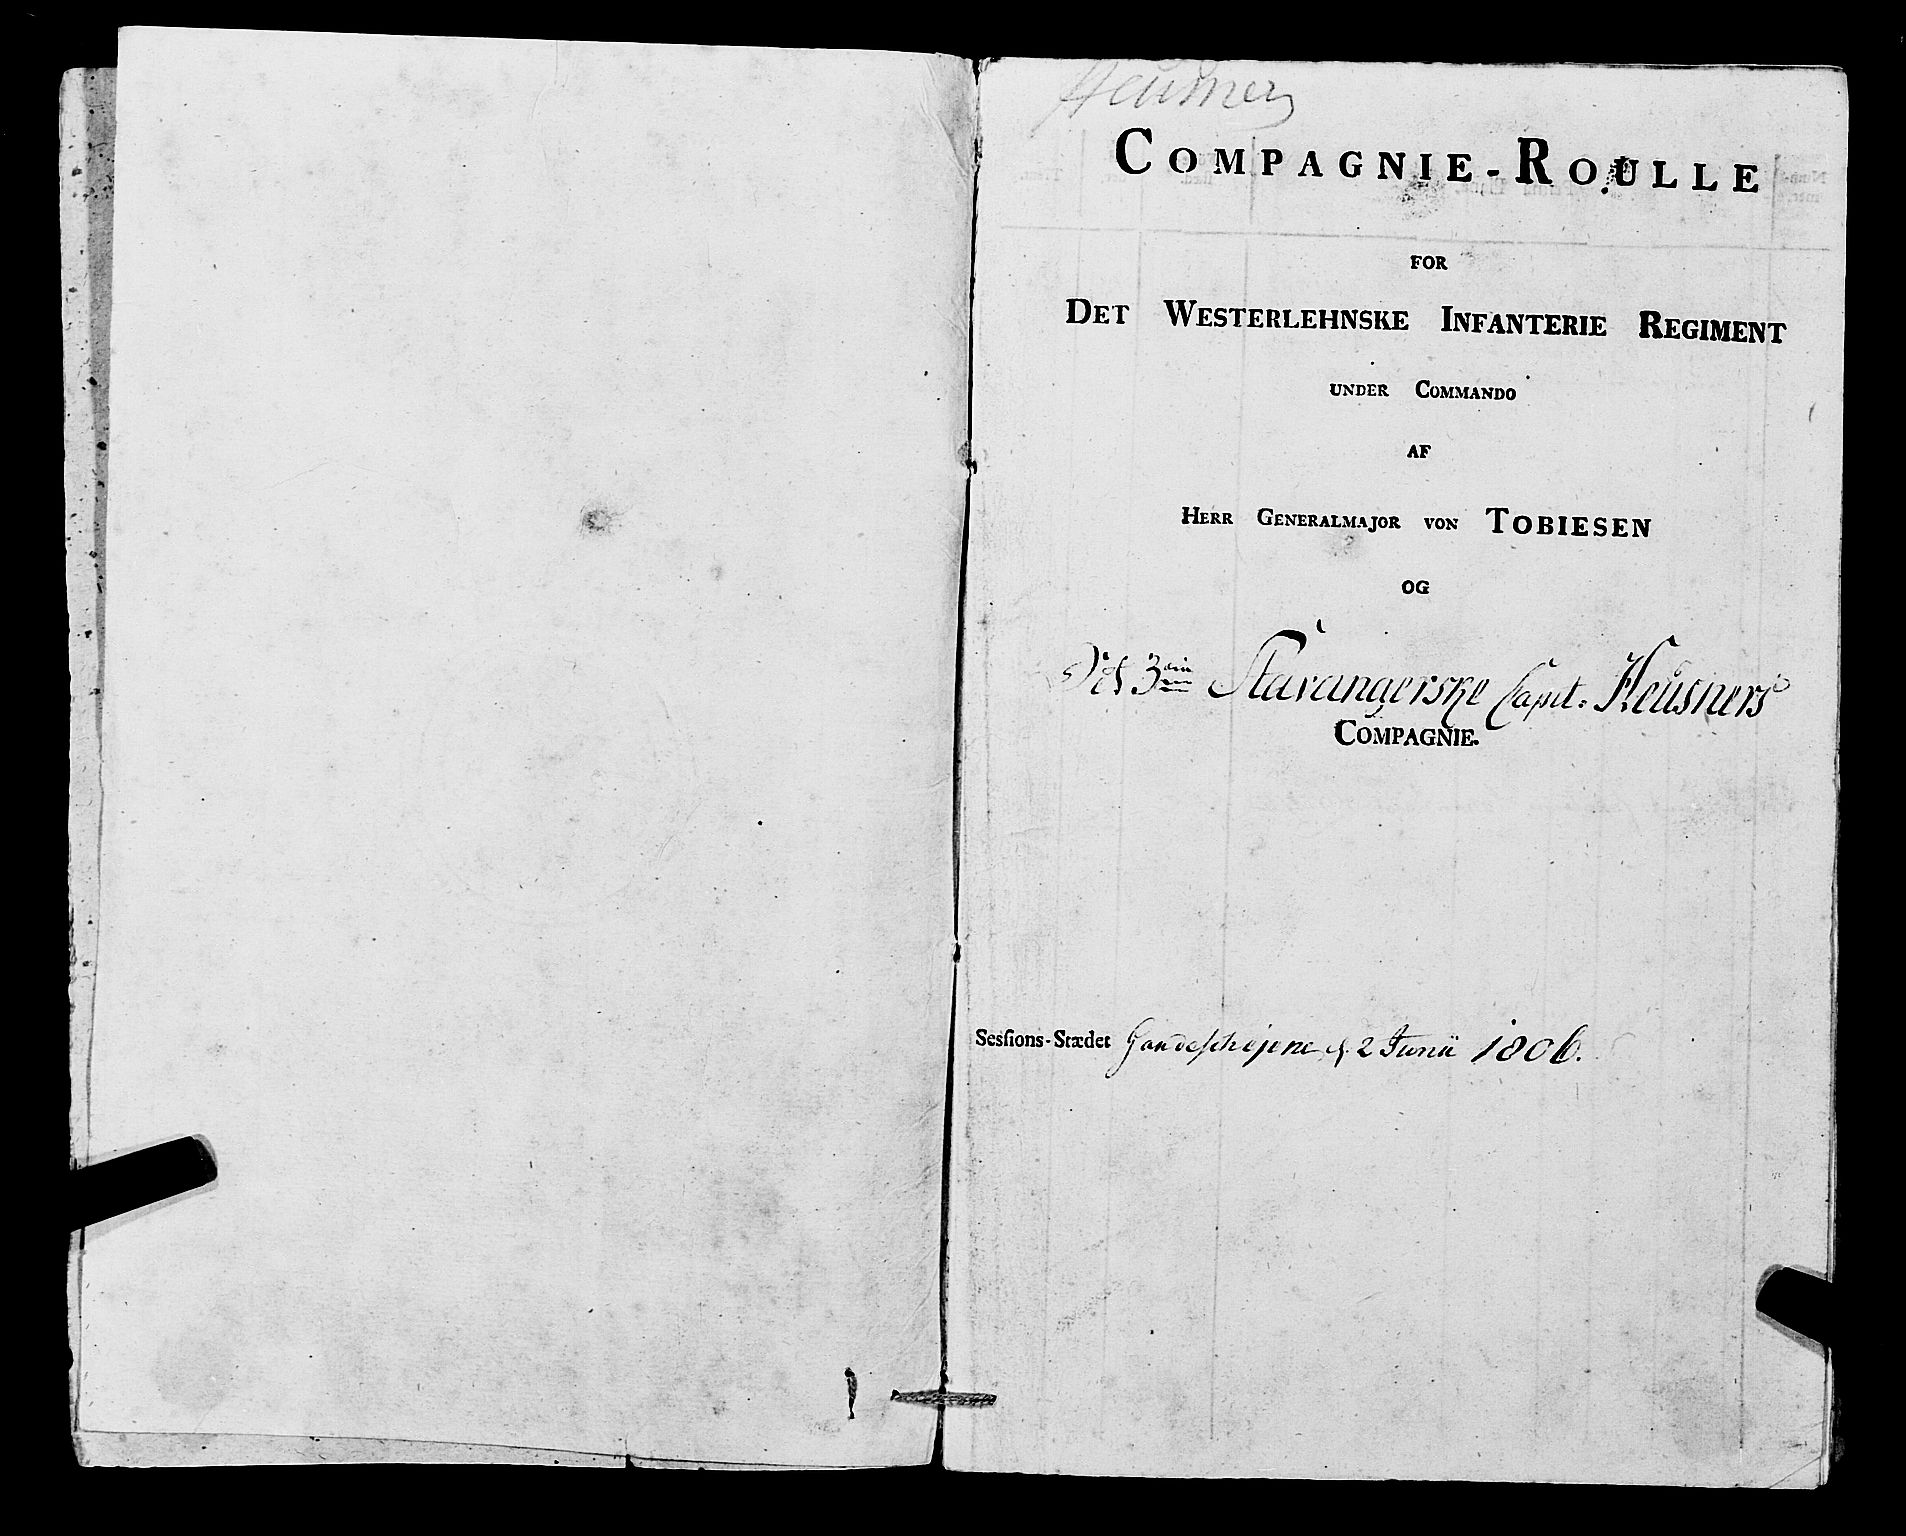 Heusner
COMPAGNIE-ROULLE
FOR
DET WESTERLEHNSKE INFANTERIE REGIMENT
UNDER COMMANDO
AF
HERR GENERALMAJOR VON TOBIESEN
OG
Det 3die Stavangerske Capit: Heusners
COMPAGNIE.
Sesſions-Stædet d. 2 Junii 1806.